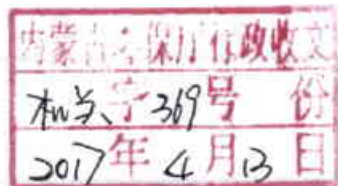 内蒙古环保厅行政收文
字369号 份
2017年4月13日